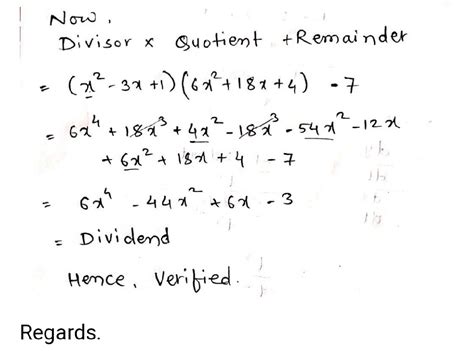 Now,
Divisor x Quotient + Remainder
= (x² - 3x + 1) (6x² + 18x + 4) - 7
= 6x⁴ + 18x³ + 4x² - 18x³ - 54x² - 12x
+ 6x² + 18x + 4 - 7
= 6x⁴ - 44x² + 6x - 3
= Dividend
Hence, Verified.
Regards.